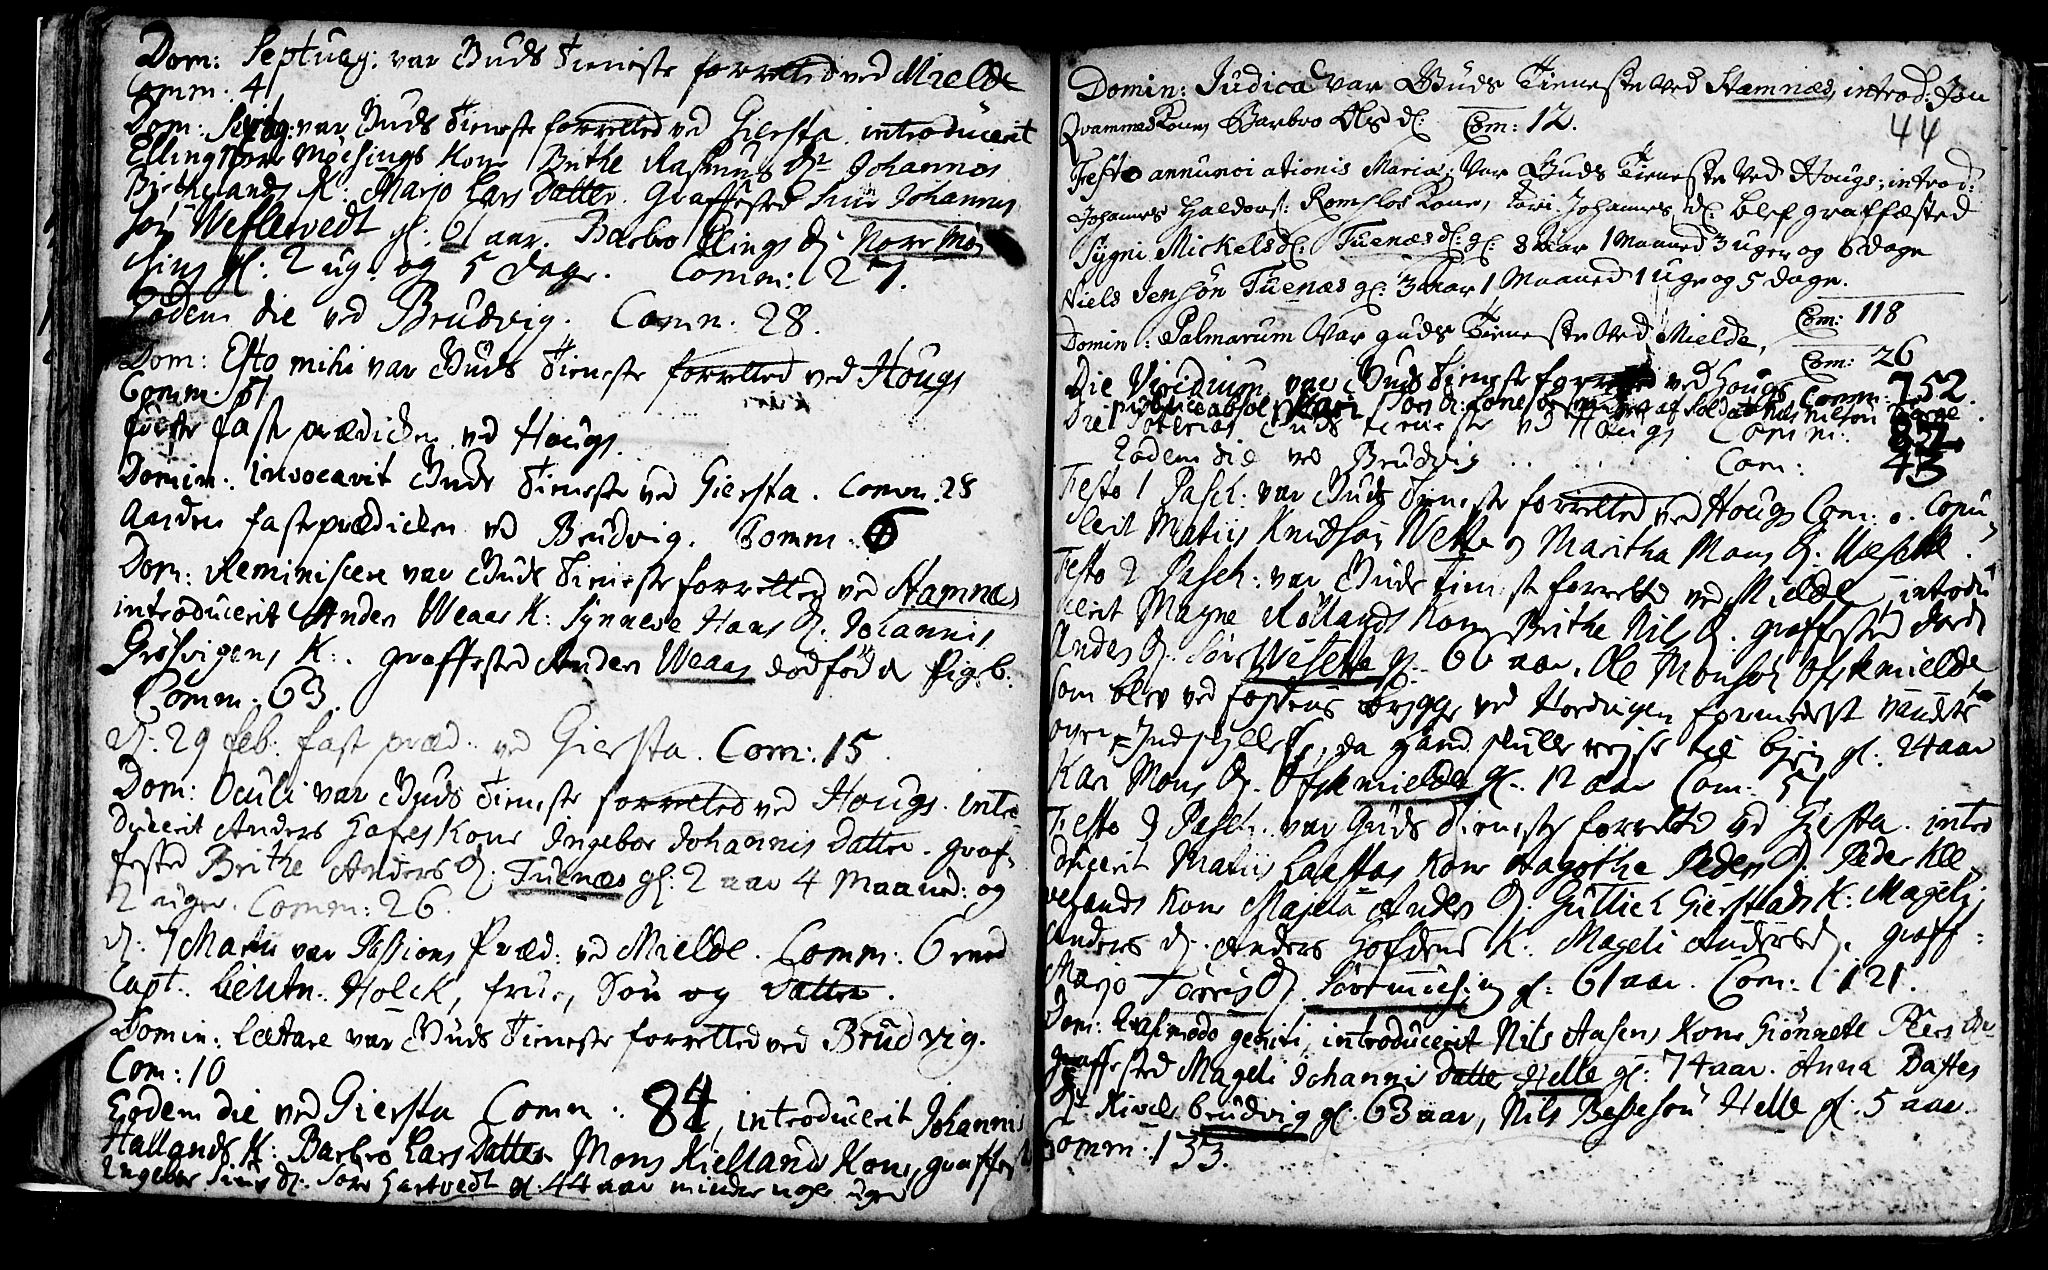 Dom: Septuag: var Guds Tieneste forretted ved Mielde
Comm: 4
Dom: Sexag: var Guds Tieneste forretted ved Giersta. introducerit
Elling Nore Møchsings Kone Brithe Rasmus Dr Johannes
Birkelands K: Marjo Lars Datter. Graffested Siur Johannes
søn Wefletvedt gl: 61 aar. Barbro Ellings D: Nore Møc
sing gl: 2 ug: og 5 dage. Comm: 27.
Eodem die ved Brudvig. Comm. 28.
Dom: Esto mihi var Guds Tieneste forretted ved Hougs
Comm. 51
første fasteprædicken ved Hougs.
Domin: invocavit Guds Tieneste ved Giersta. Comm. 28
Anden fasteprædicken ved Brudvig. Comm: 6
Dom: Reminiscere var Guds Tieneste forretted ved Stamnes
introducerit Anders Weaas K: Synneve Hans D. Johannis
Grøsvigens K:. graffested Anders Weaas dødfød Pigeb.
Comm: 63.
d: 29 feb: fast præd: ved Giersta. Com: 15.
Dom: Oculi var Guds Tieneste forretted ved Hougs. intro
ducerit Anders Hofres Kone Ingebor Johannis Datter. graf-
fested Brithe Anders D. Tuenæs gl: 2 aar 4 Maaned: og
2 uger. Comm: 26.
d. 7 Martii var Passions Præd: ved Mielde. Comm: 6 med
Capt. Lieutn. Holck, frue, Søn og Datter.
Domin: Lætare var Guds Tieneste forretted ved Brudvig.
Com: 10
Eodem die ved Giersta Comm: 84, introducerit Johannis
Hallands K: Barbro Lars Datter Mons Kiellands Kone, graffest
Ingebor Siurs D: Søre Hartvedt gl. 44 aar minder nogle uger
Domin: Judica var Guds Tieneste ved Stamnæs, introd: Jon
Qvammes Kone Barbro Ols d: Com: 12.
44
Festo annunciationis Mariæ: var Guds Tieneste ved Hougs; introd:
Johannes Haldors: Romslos Kone, Kari Johannes d: blef graffæsted
Sygni Mickels d: Tuenæs d: gl: 8 aar 1 Maaned 3 uger og 6 dage
Niels Jensøn Tuenæs gl: 3 aar 1 Maaned 1 uge og 5 dage.
Com: 118
Domin: Palmarum var guds Tieneste ved Mielde,
Com: 26
Die Viridium var Guds Tieneste forretted ved Hougs Comm: 752.
publice absol: Kari af Soldat Nils Nilsøn
Guds tieneste ved Hougs Comm:
Eodem die ved Brudvig Com: 43
Festo 1 Pasch: var Guds Tieneste forretted ved Hougs Com: 0. Copu
lerit Matiis Knudsøn Wette og Maritha Mons D. Wesette.
Festo 2 Pasch: var Guds Tieneste forretted ved Mielde, introdu
cerit Magne Rollands Kone Brithe Nils D. graffested
Anders D. Søre Wesette gl. 66 aar, Ole Monsøn Ofstemielde
som blev ved fossens brygge ved Hordvigen formedelst vandets
over Indskyllelse, da hand skulle rejse til byen gl: 24 aar
Kari Mons D. Ofstemielde gl: 12 aar Com: 57
Festo 3 Pasch. var Guds Tieneste forretted ved Giersta. intro
ducerit Matiis Laastas Kone Aagothe Peders D. Peder Kle
velands Kone Magela Anders D. Guttich Gierstads K: Mageli
Anders d. Anders Hofdens K. Mageli Anders d. graff:
Marjo Torris D. Søremusing gl: 61 aar. Com: 121.
Dom: Qvasimodo geniti, introducerit Nils Aasens Kone Giønnete Peers D:
graffested Mageli Johannis Datter Helle gl: 74 aar. Anna Bastes
D: Brudvig gl. 63 aar, Nils Bessesøn Helle gl. 5 aar.
Comm: 133.